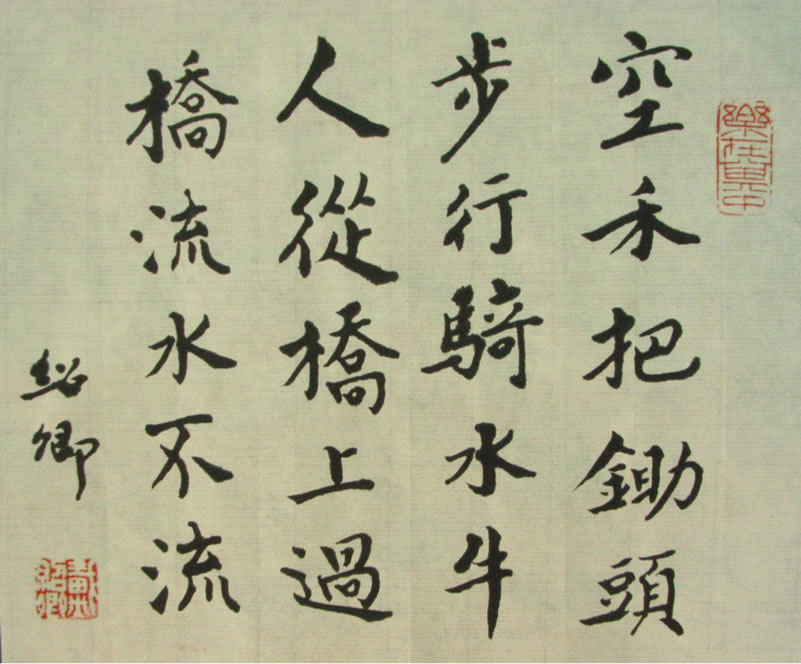 樂在其中
空禾把鋤頭
步行騎水牛
人從橋上過
橋流水不流
紹卿
戴紹卿